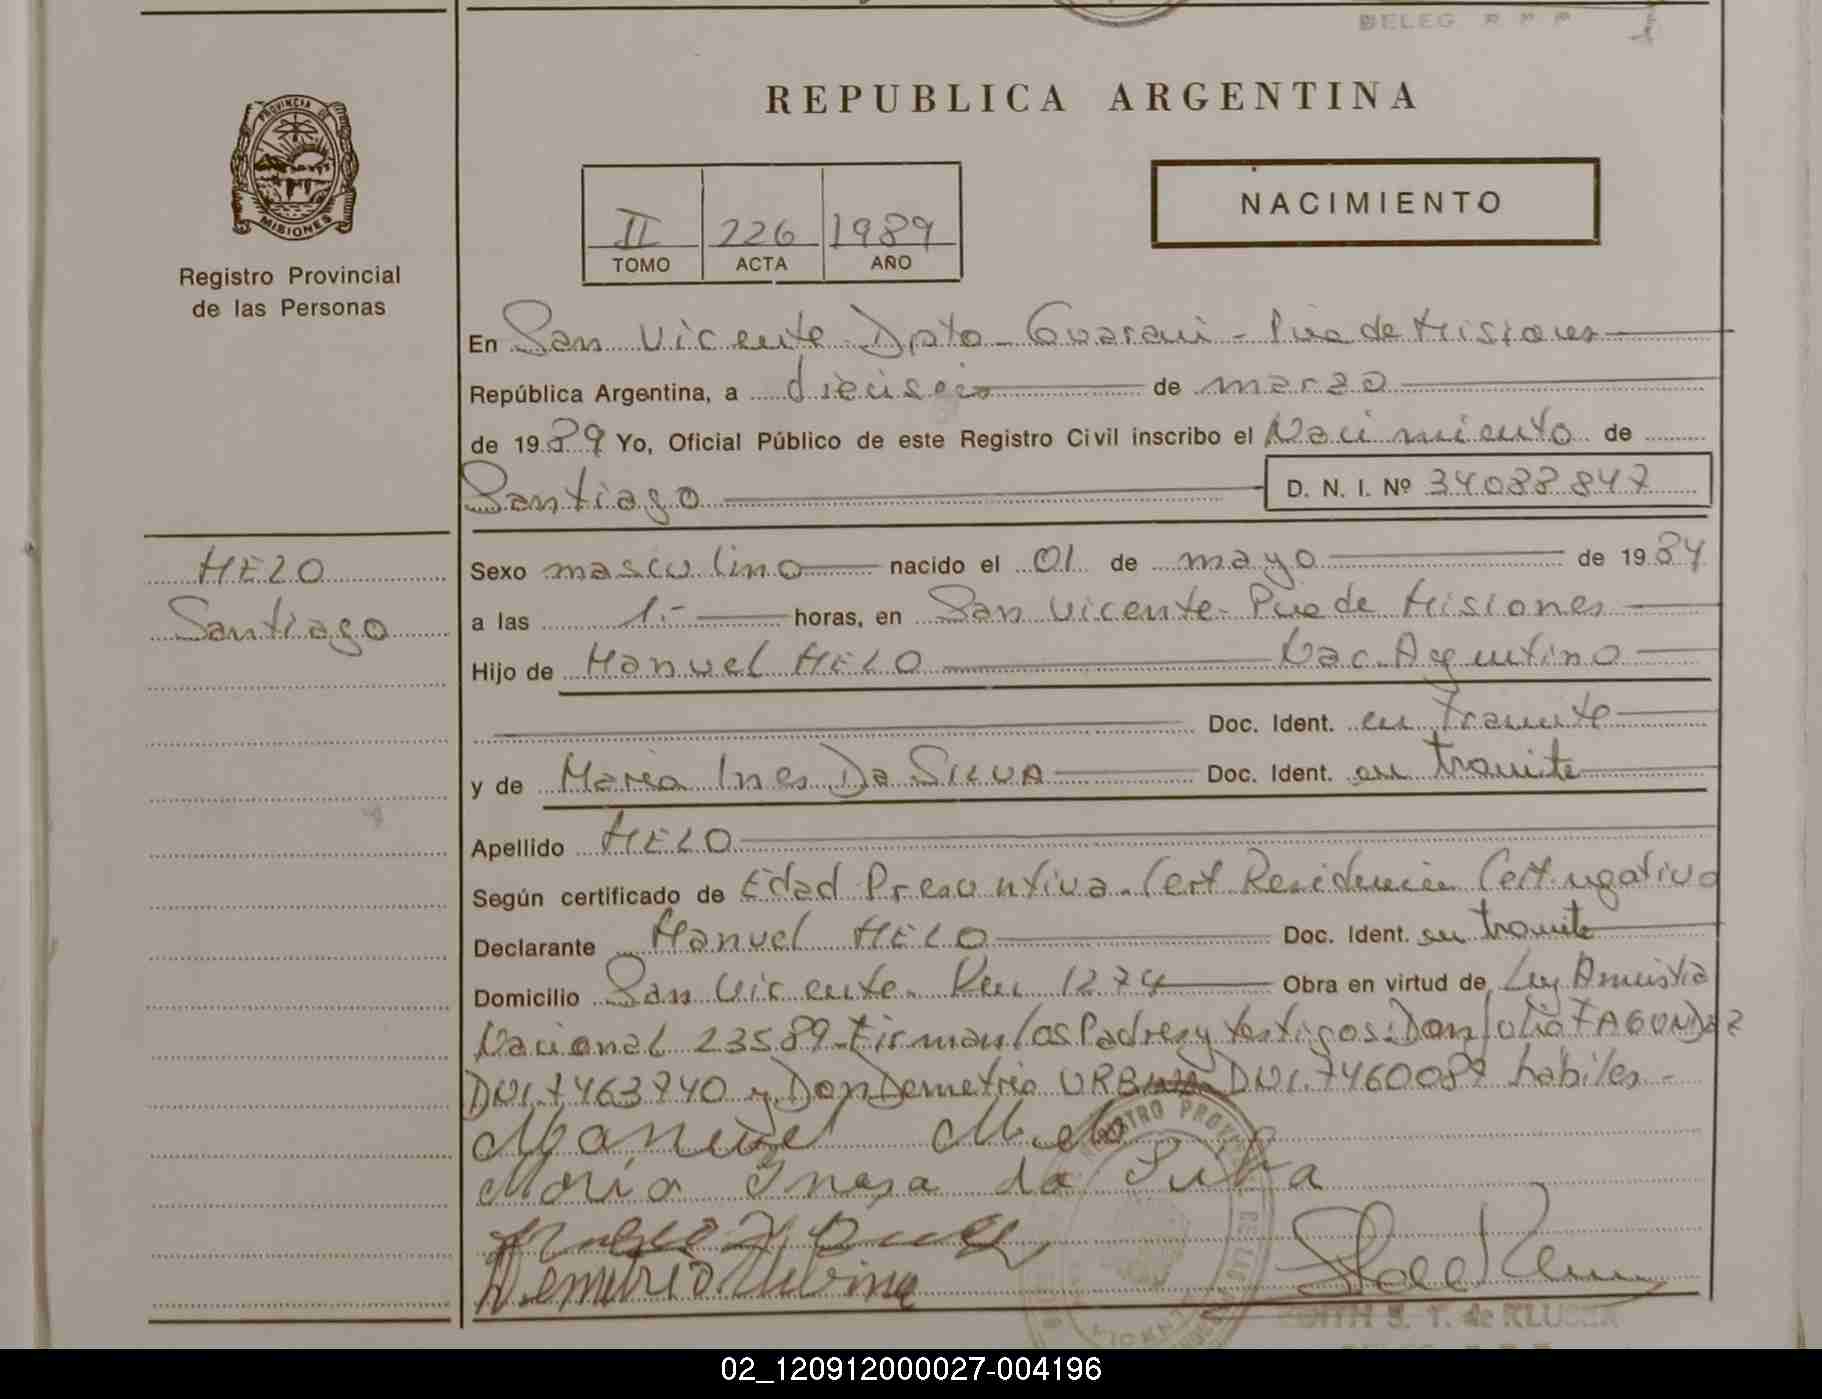 DELEG R P P
REPUBLICA ARGENTINA
PROVINCIA
MISIONES
Registro Provincial
de las Personas
II 226 1989
TOMO ACTA AÑO
NACIMIENTO
En San Vicente Dpto Guarani - Pcia de Misiones
República Argentina, a dieciseis de marzo
de 1989 Yo, Oficial Público de este Registro Civil inscribo el Nacimiento de
Santiago D. N. I. Nº 34088847
MELO
Santiago
Sexo masculino nacido el 01 de mayo de 1984
a las 1.- horas, en San Vicente - Pcia de Misiones
Hijo de Manuel MELO Nac. Argentino
Doc. Ident. en tramite
y de Maria Ines Da SILVA Doc. Ident. en tramite
Apellido MELO
Según certificado de Edad Presuntiva - Cert Residencia Cert negativo
Declarante Manuel MELO Doc. Ident. en tramite
Domicilio San Vicente. 1274 Obra en virtud de Ley Amnistia
Nacional 23589 - Firman los Padres y testigos: Don Julio FAGUNDEZ
DNI. 7463740 y Don Demetrio DNI. 7460089 habiles -
Manuel Melo
Maria Inesa da Silva
Demetrio
REGISTRO PROVINCIAL
EDITH S. T. de KLUSKA
02_120912000027-004196